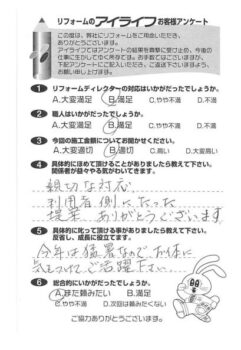 リフォームのアイライフお客様アンケート
この度は、弊社にリフォームをご用命いただき、
ありがとうございます。
アイライフではアンケートの結果を真摯に受け止め、今後の
仕事に生かしてゆく所存です。お手数ではございますが、
下記アンケートにご記入いただき、ご返送下さいますよう、
お願い申し上げます。
1 リフォームディレクターの対応はいかがだったでしょうか。
A.大変満足 B.満足 C.やや不満 D.不満
2 職人はいかがだったでしょうか。
A.大変満足 B.満足 C.やや不満 D.不満
3 今回の施工金額についてお聞かせください。
A.大変適切 B.適切 C.高い D.大変高い
4 具体的にほめて頂けることがありましたら教えて下さい。
関係者が益々やる気がわいてきます。
親切な対応
利用者側にたった
提案 ありがとうございます
5 具体的に叱って頂ける事がありましたら教えて下さい。
反省し、成長に役立てます。
今年は猛暑なので、お体に
気をつけてご活躍下さい
6 総合的にいかがだったでしょうか。
A.また頼みたい B.満足
C.やや不満 D.次回は頼みたくない
ご協力ありがとうございます。